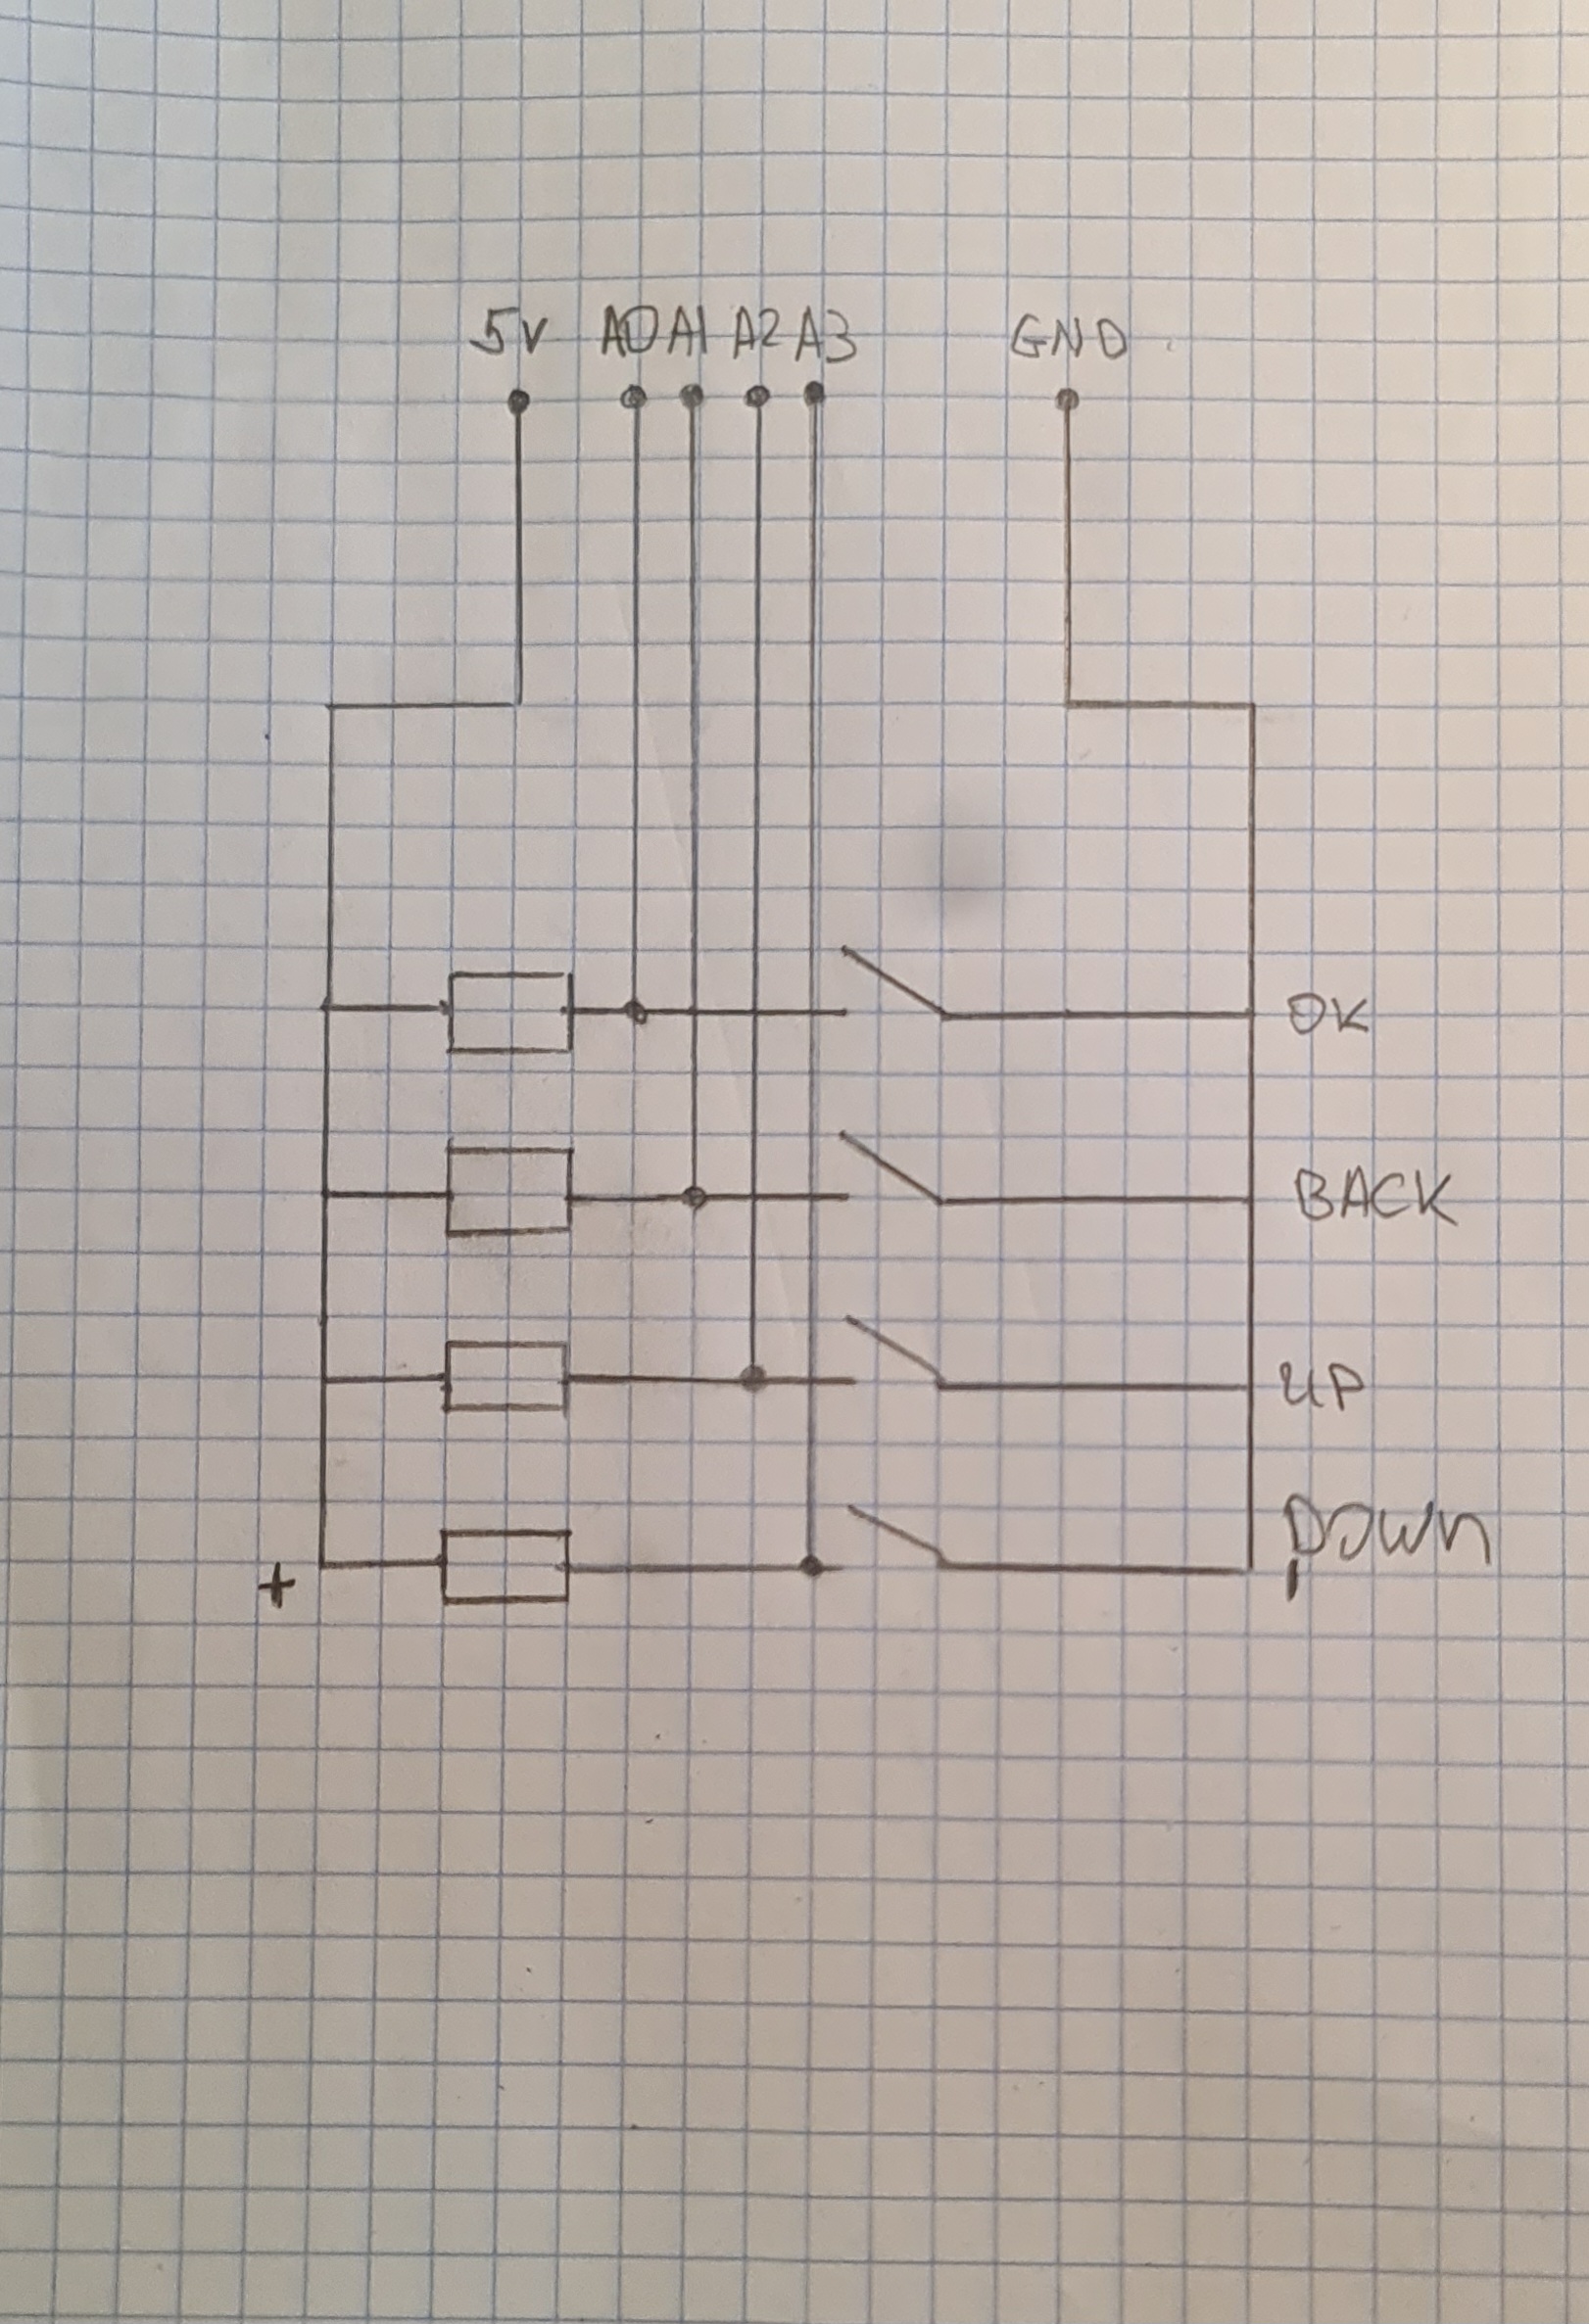 5V A0 A1 A2 A3 GND
OK
BACK
UP
DOWN
+